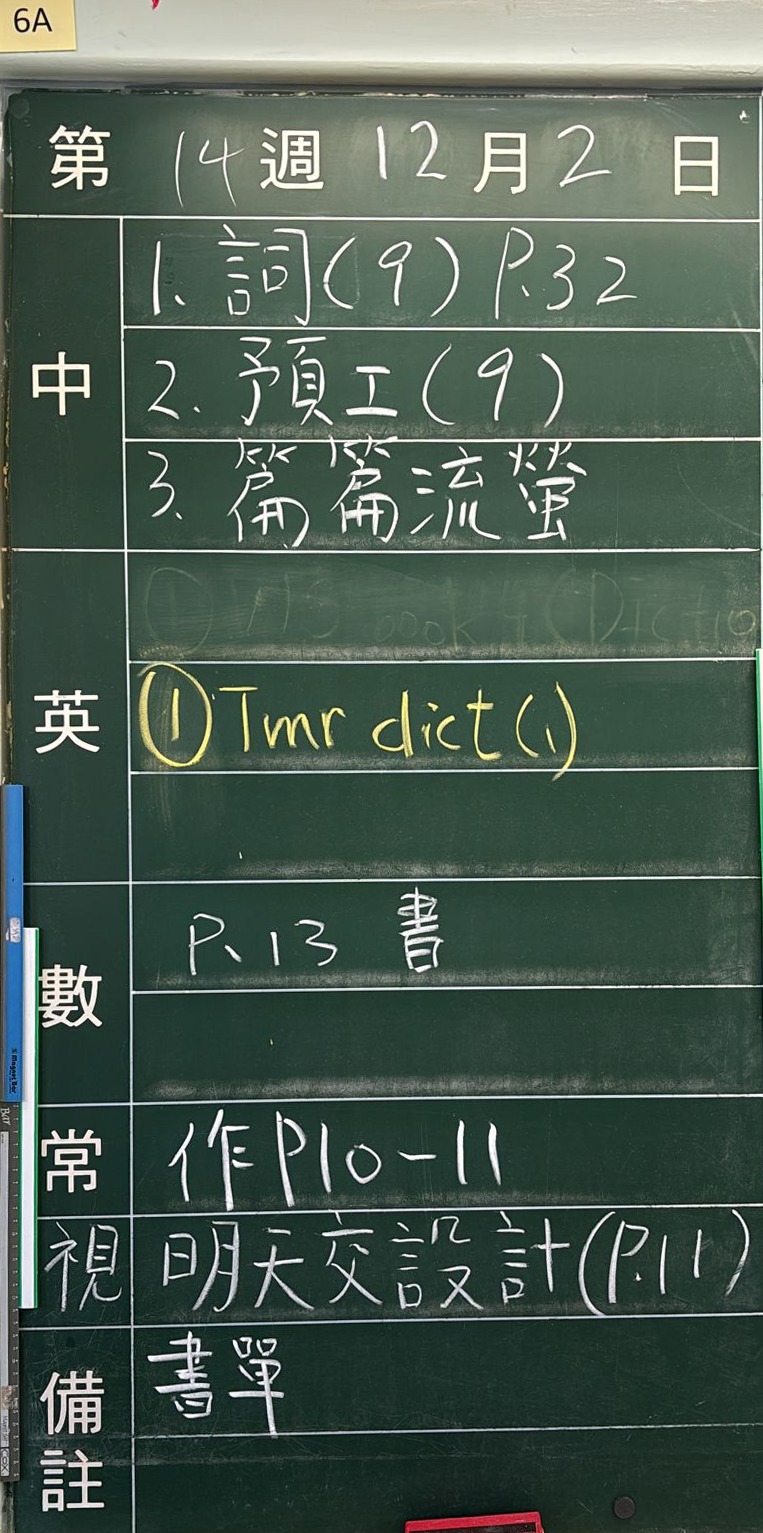 6A
第 14 週 12 月 2 日
中
1. 詞(9) P.32
2. 預工(9)
3. 篇篇流螢
英
① Tmr dict(1)
數
P.13 書
常
作P10-11
視
明天交設計(P.11)
備註
書單